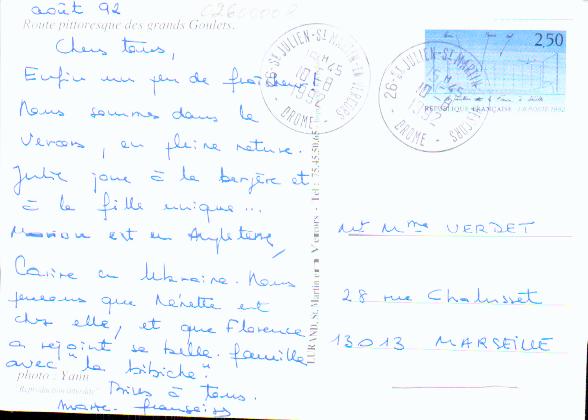 août 92
Route pittoresque des grands Goulets.
Chers tous,
Enfin un peu de fraîcheur !
Nous sommes dans le
Vercors, en pleine nature.
Julie joue à la bergère et
à la fille unique...
est en Angleterre,
Carine en Ukraine. Nous
pensons que Nénette est
chez elle, et que Florence
a rejoint sa belle famille
avec "la bibiche".
Bises à tous.
Marie-françoise
photo : Yann
"Reproduction interdite"
26-ST JULIEN-ST MARTIN EN VERCORS
10-8
1992
- DROME -
26-ST JULIEN-ST MARTIN VERCORS
-45
10-8
1992
- DROME -
2,50
REPUBLIQUE FRANÇAISE LA POSTE 1992
St Martin en Vercors - Tél : 75.45.50.65
Mr Mme VERDET
28 rue Chalusset
13013 MARSEILLE